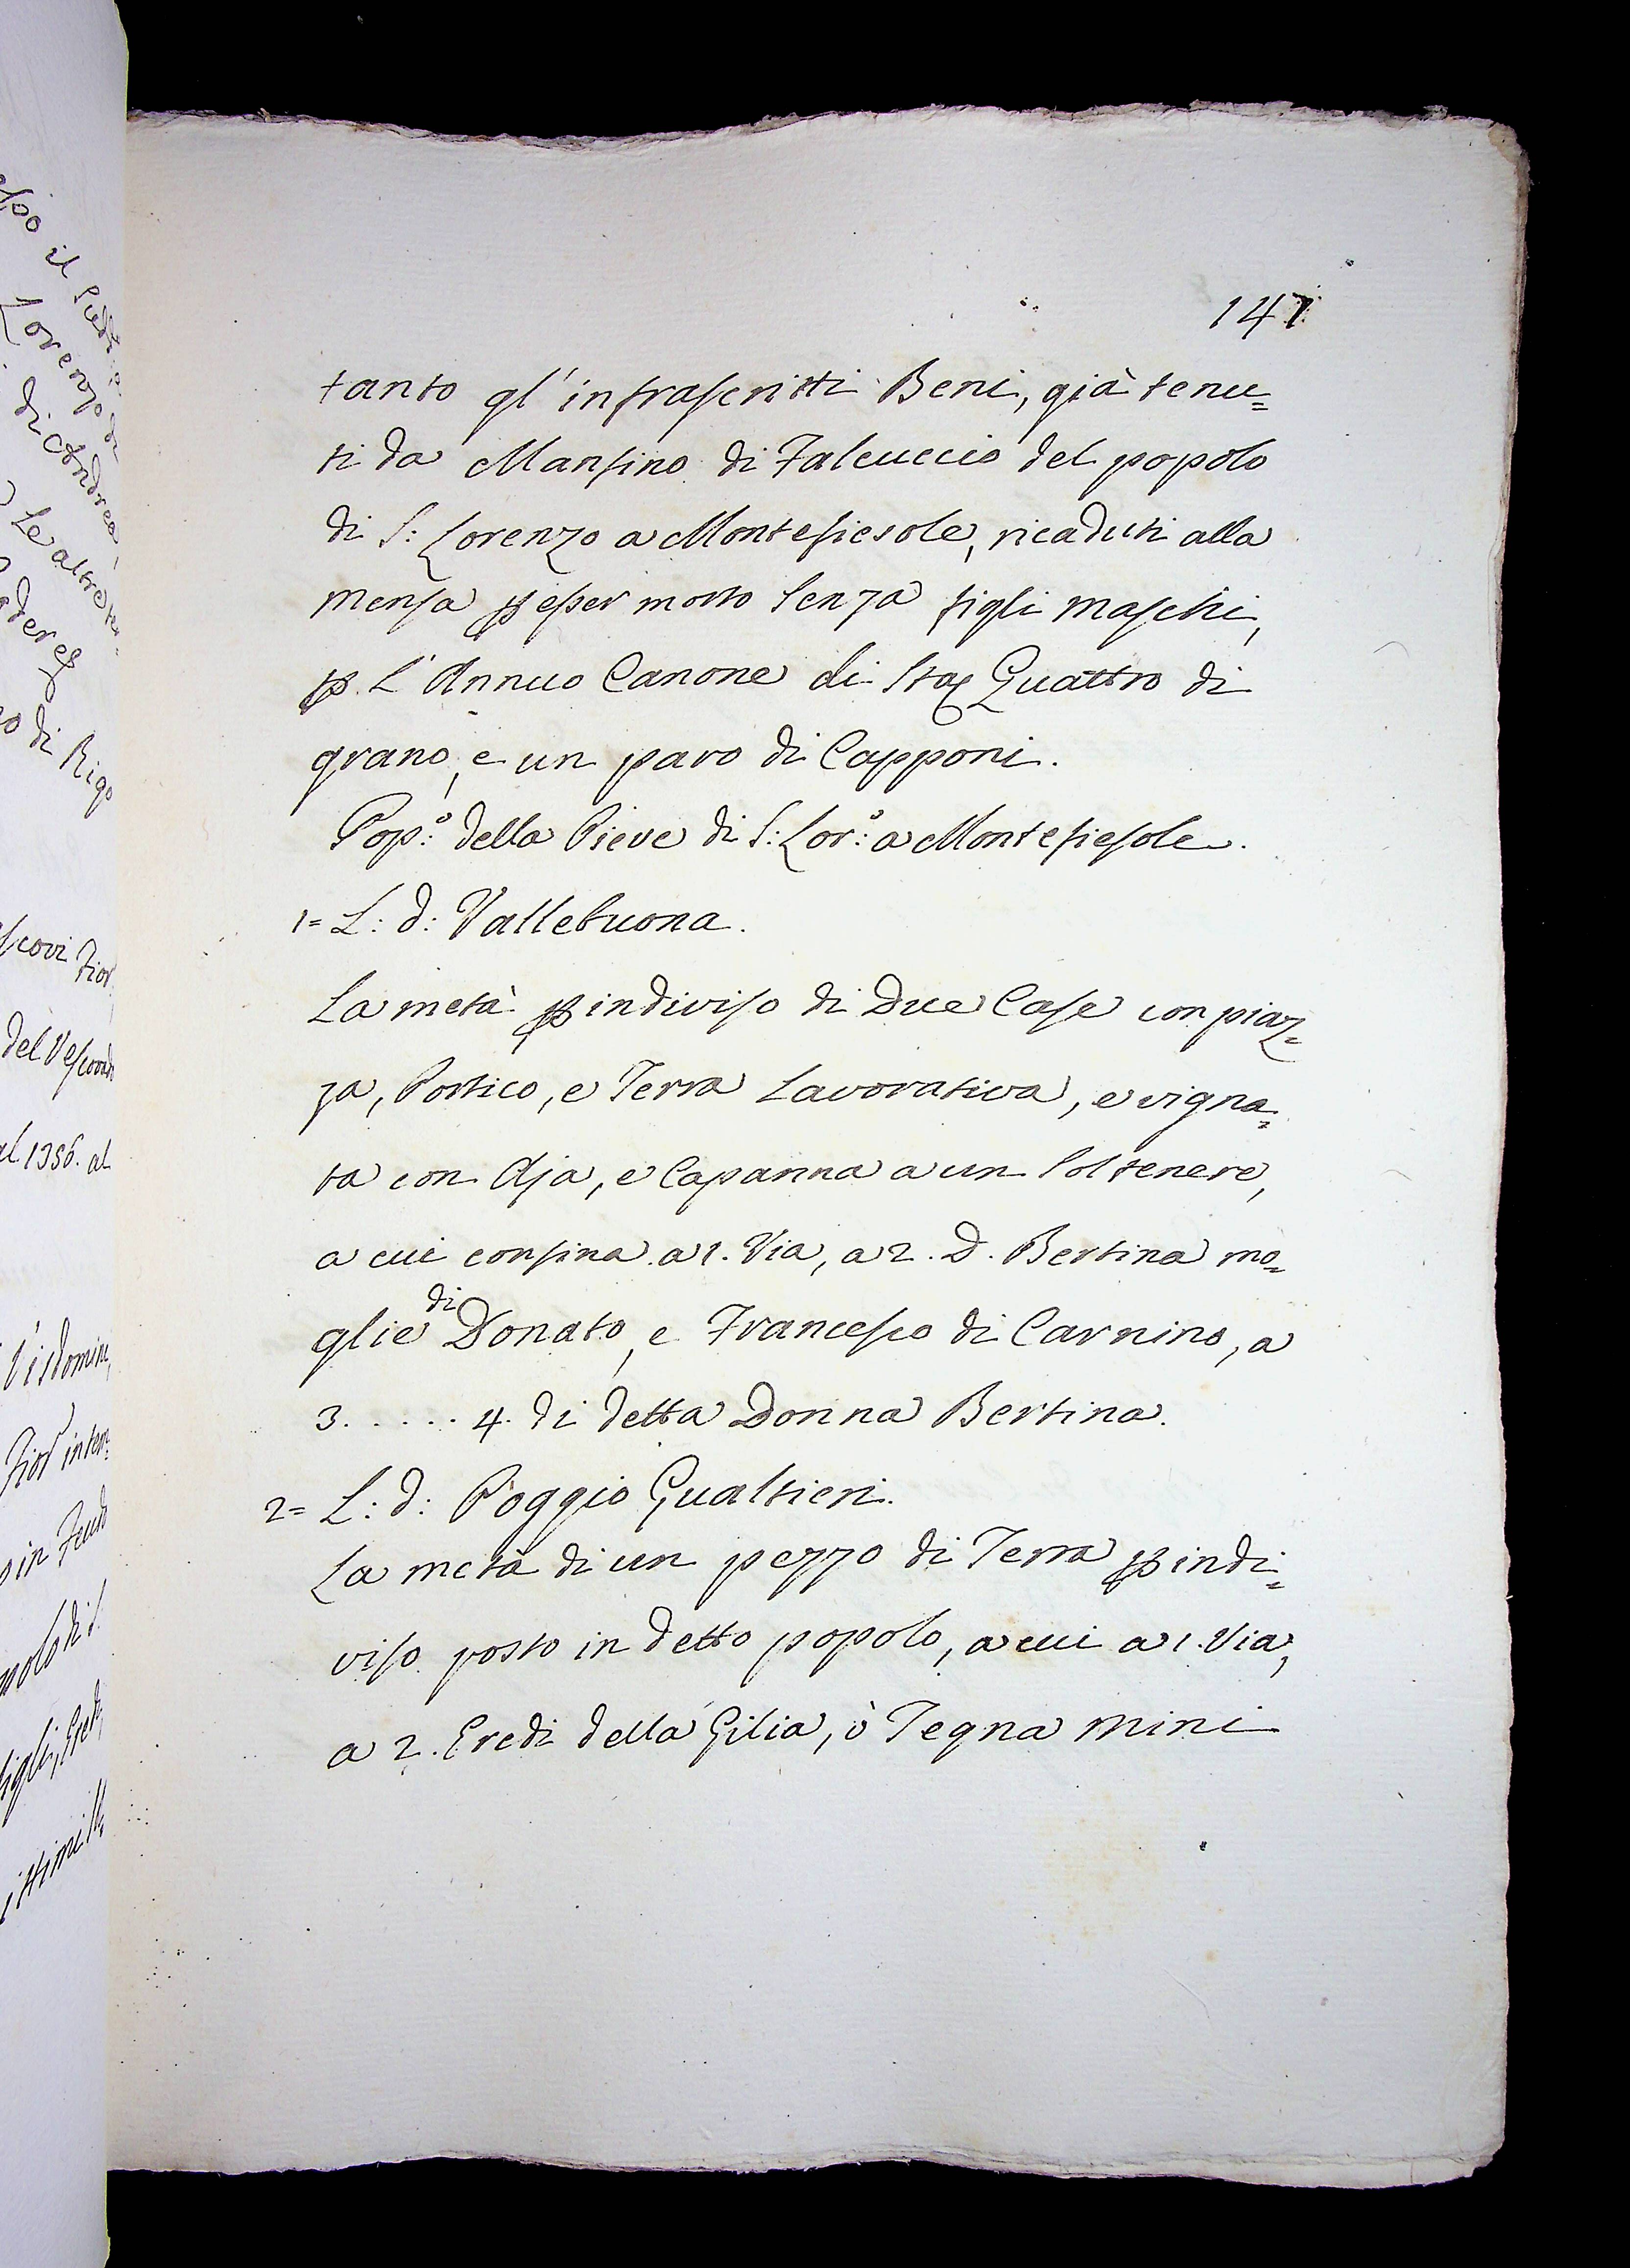 141
tanto gl'infrascritti Beni, già tenu=
ti da Mansino di Falcuccio del popolo
di S: Lorenzo a Montefiesole, ricaduti alla
Mensa p esser morto senza figli maschi,
p. l'Annuo Canone di Sta Quattro di
grano, e un paro di Capponi.
Pop:o della Pieve di S: Lor:o a Montefiesole.
1= L: d: Vallebuona.
La metà p indiviso di Due Case con piaz=
za, Portico, e Terra Lavorativa, e vigna=
ta con Aja, e Capanna a un Sol tenere,
a cui confina a 1. Via, a 2. D. Bertina mo=
glie di Donato, e Francesco di Carnino, a
3. . . . . 4. di detta Donna Bertina.
2= L: d: Poggio Gualtieri.
La metà di un pezzo di Terra p indi=
viso posto in detto popolo, a cui a 1. Via,
a 2. Eredi della Gilia, ò Tegna Mini
il
Lorenzo
di Andrea
Le altre
di Rigo
Fior
del Vescovado
al 1356. al
Visdomini,
Fior
in Feudo
figli, Eredi,